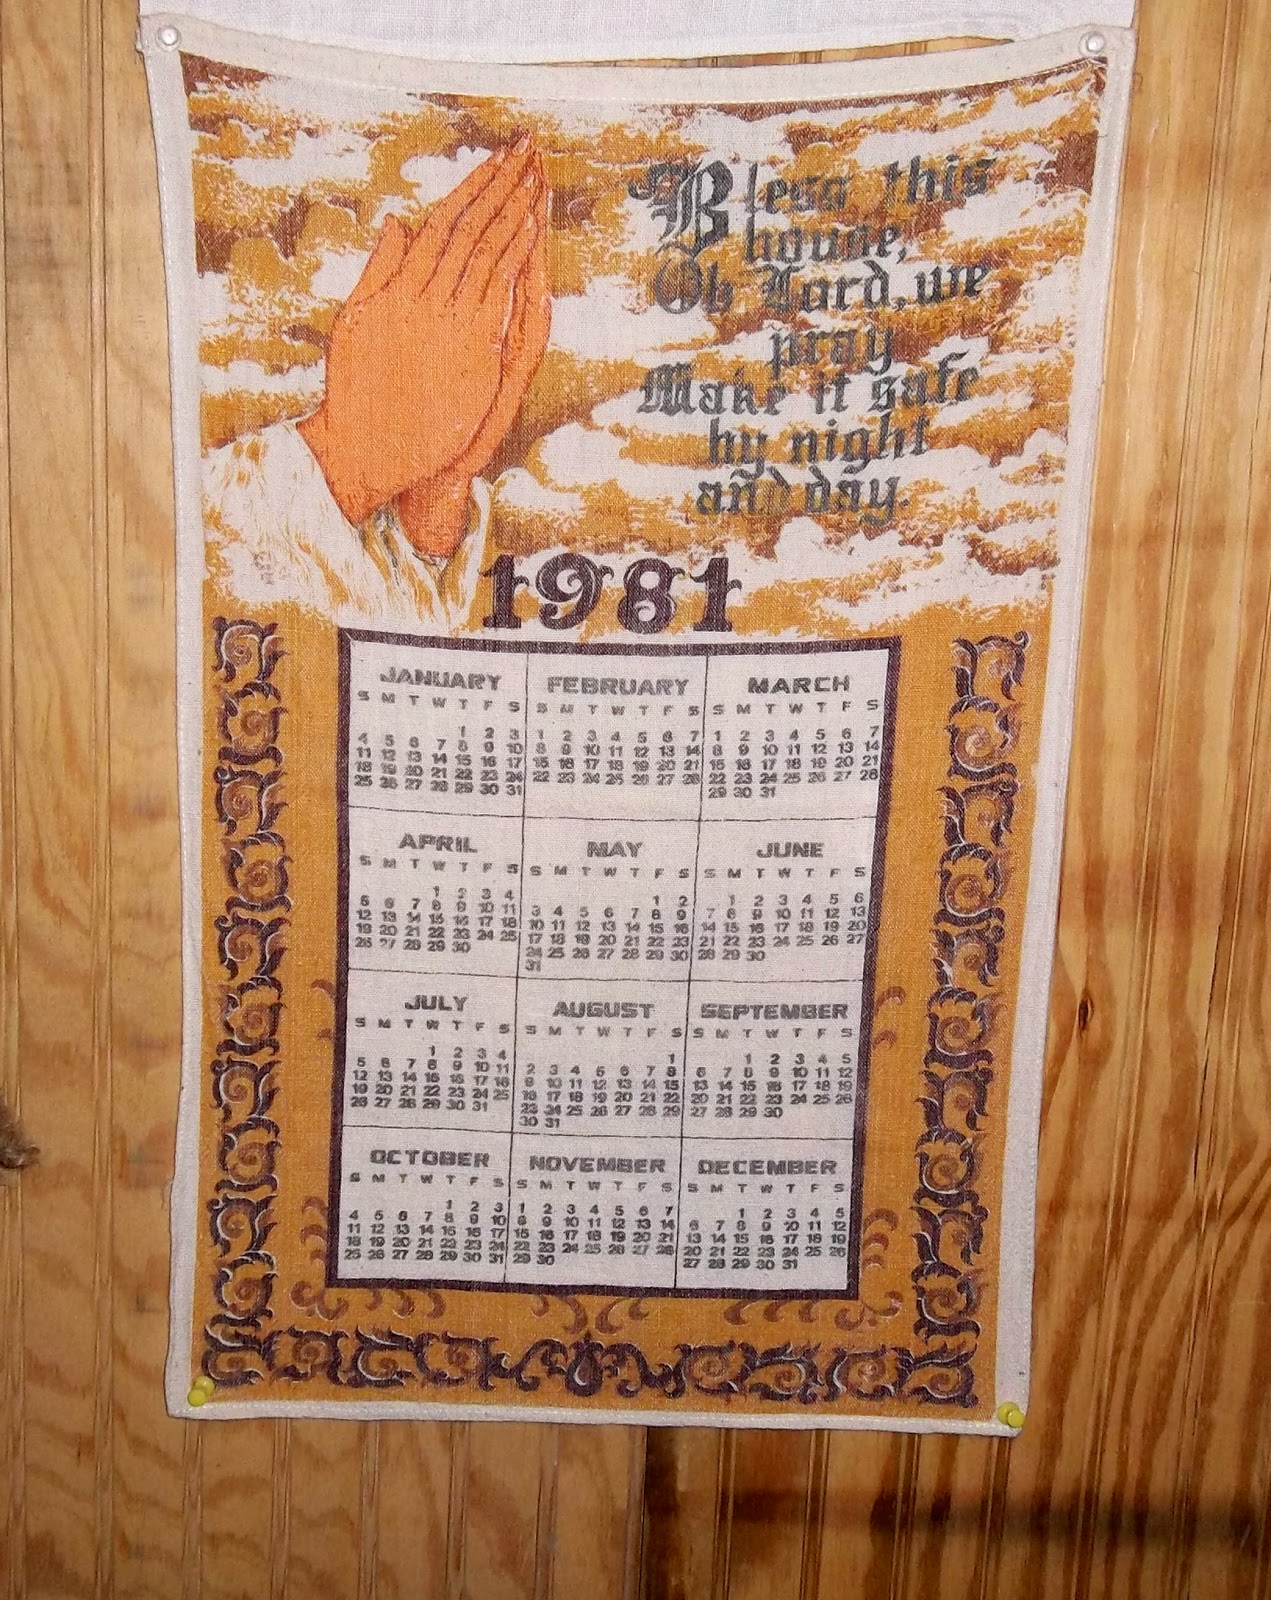 Bless this
house,
Oh Lord, we
pray
Make it safe
by night
and day.
1981
JANUARY
S M T W T F S
1 2 3
4 5 6 7 8 9 10
11 12 13 14 15 16 17
18 19 20 21 22 23 24
25 26 27 28 29 30 31
FEBRUARY
S M T W T F S
1 2 3 4 5 6 7
8 9 10 11 12 13 14
15 16 17 18 19 20 21
22 23 24 25 26 27 28
MARCH
S M T W T F S
1 2 3 4 5 6 7
8 9 10 11 12 13 14
15 16 17 18 19 20 21
22 23 24 25 26 27 28
29 30 31
APRIL
S M T W T F S
1 2 3 4
5 6 7 8 9 10 11
12 13 14 15 16 17 18
19 20 21 22 23 24 25
26 27 28 29 30
MAY
S M T W T F S
1 2
3 4 5 6 7 8 9
10 11 12 13 14 15 16
17 18 19 20 21 22 23
24 25 26 27 28 29 30
31
JUNE
S M T W T F S
1 2 3 4 5 6
7 8 9 10 11 12 13
14 15 16 17 18 19 20
21 22 23 24 25 26 27
28 29 30
JULY
S M T W T F S
1 2 3 4
5 6 7 8 9 10 11
12 13 14 15 16 17 18
19 20 21 22 23 24 25
26 27 28 29 30 31
AUGUST
S M T W T F S
1
2 3 4 5 6 7 8
9 10 11 12 13 14 15
16 17 18 19 20 21 22
23 24 25 26 27 28 29
30 31
SEPTEMBER
S M T W T F S
1 2 3 4 5
6 7 8 9 10 11 12
13 14 15 16 17 18 19
20 21 22 23 24 25 26
27 28 29 30
OCTOBER
S M T W T F S
1 2 3
4 5 6 7 8 9 10
11 12 13 14 15 16 17
18 19 20 21 22 23 24
25 26 27 28 29 30 31
NOVEMBER
S M T W T F S
1 2 3 4 5 6 7
8 9 10 11 12 13 14
15 16 17 18 19 20 21
22 23 24 25 26 27 28
29 30
DECEMBER
S M T W T F S
1 2 3 4 5
6 7 8 9 10 11 12
13 14 15 16 17 18 19
20 21 22 23 24 25 26
27 28 29 30 31